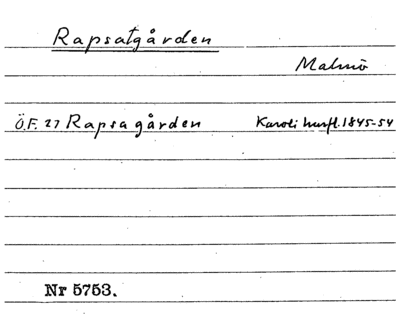 Rapsatgården
Malmö
Ö.F. 27 Rapsagården Karoli husfl. 1845-54
Nr 5753.